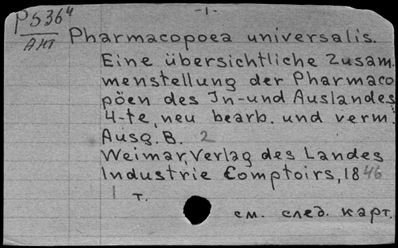 -1-
P536⁴
АНТ
Pharmacopoea universalis.
Eine übersichtliche Zusam
menstellung der Pharmaco
pöen des In-und Auslandes
4-te, neu bearb. und verm.
Ausg. B. 2
Weimar, Verlag des Landes
Industrie Comptoirs, 1846
1 т.
см. след. карт.